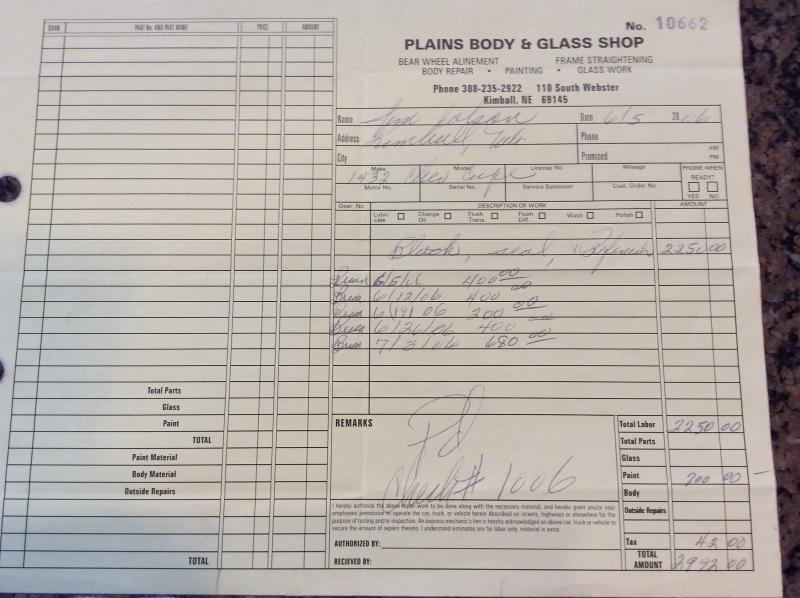 QUAN. PART No. AND PART NAME PRICE AMOUNT
No. 10662
PLAINS BODY & GLASS SHOP
BEAR WHEEL ALINEMENT FRAME STRAIGHTENING
BODY REPAIR • PAINTING • GLASS WORK
Phone 308-235-2922 110 South Webster
Kimball, NE 69145
Name Date 6/5 2006
Address Kimball, Neb. Phone
City Promised AM PM
Make Model License No. Mileage PHONE WHEN READY?
1932 Chev Cupe
Motor No. Serial No. Service Salesman Cust. Order No. YES NO
Oper. No. DESCRIPTION OF WORK AMOUNT
Lubricate Change Oil Flush Trans. Flush Diff. Wash Polish
Block, seal, Refinish 2250 00
Brian 6/5/06 400 00
Brian 6/12/06 400 00
Brian 6/19/06 200 00
Brian 6/26/06 400
Brian 7/3/06 680 00
Total Parts
Glass
Paint
TOTAL
Paint Material
Body Material
Outside Repairs
TOTAL
REMARKS
Pd
Check # 1006
Total Labor 2250 00
Total Parts
Glass
Paint 700 00
Body
Outside Repairs
Tax 42 00
TOTAL AMOUNT 2992 00
I hereby authorize the above repair work to be done along with the necessary material, and hereby grant you/or your
employees permission to operate the car, truck, or vehicle herein described on streets, highways or elsewhere for the
purpose of testing and/or inspection. An express mechanic's lien is hereby acknowledged on above car, truck or vehicle to
secure the amount of repairs thereto. I understand estimates are for labor only, material is extra.
AUTHORIZED BY:
RECIEVED BY: